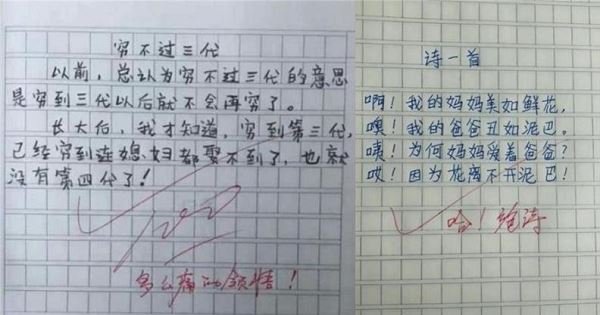 穷不过三代
以前，总认为穷不过三代的意思
是穷到三代以后就不会再穷了。
长大后，我才知道，穷到第三代，
已经穷到连媳妇都娶不到了，也就
没有第四代了！
100
多么痛的领悟！
诗一首
啊！我的妈妈美如鲜花，
噢！我的爸爸丑如泥巴。
咦！为何妈妈爱着爸爸？
哎！因为花离不开泥巴！
哈！绝诗